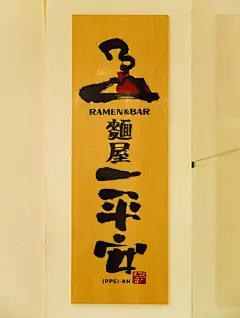 RAMEN&BAR
麵屋
一平安
IPPEI-AN